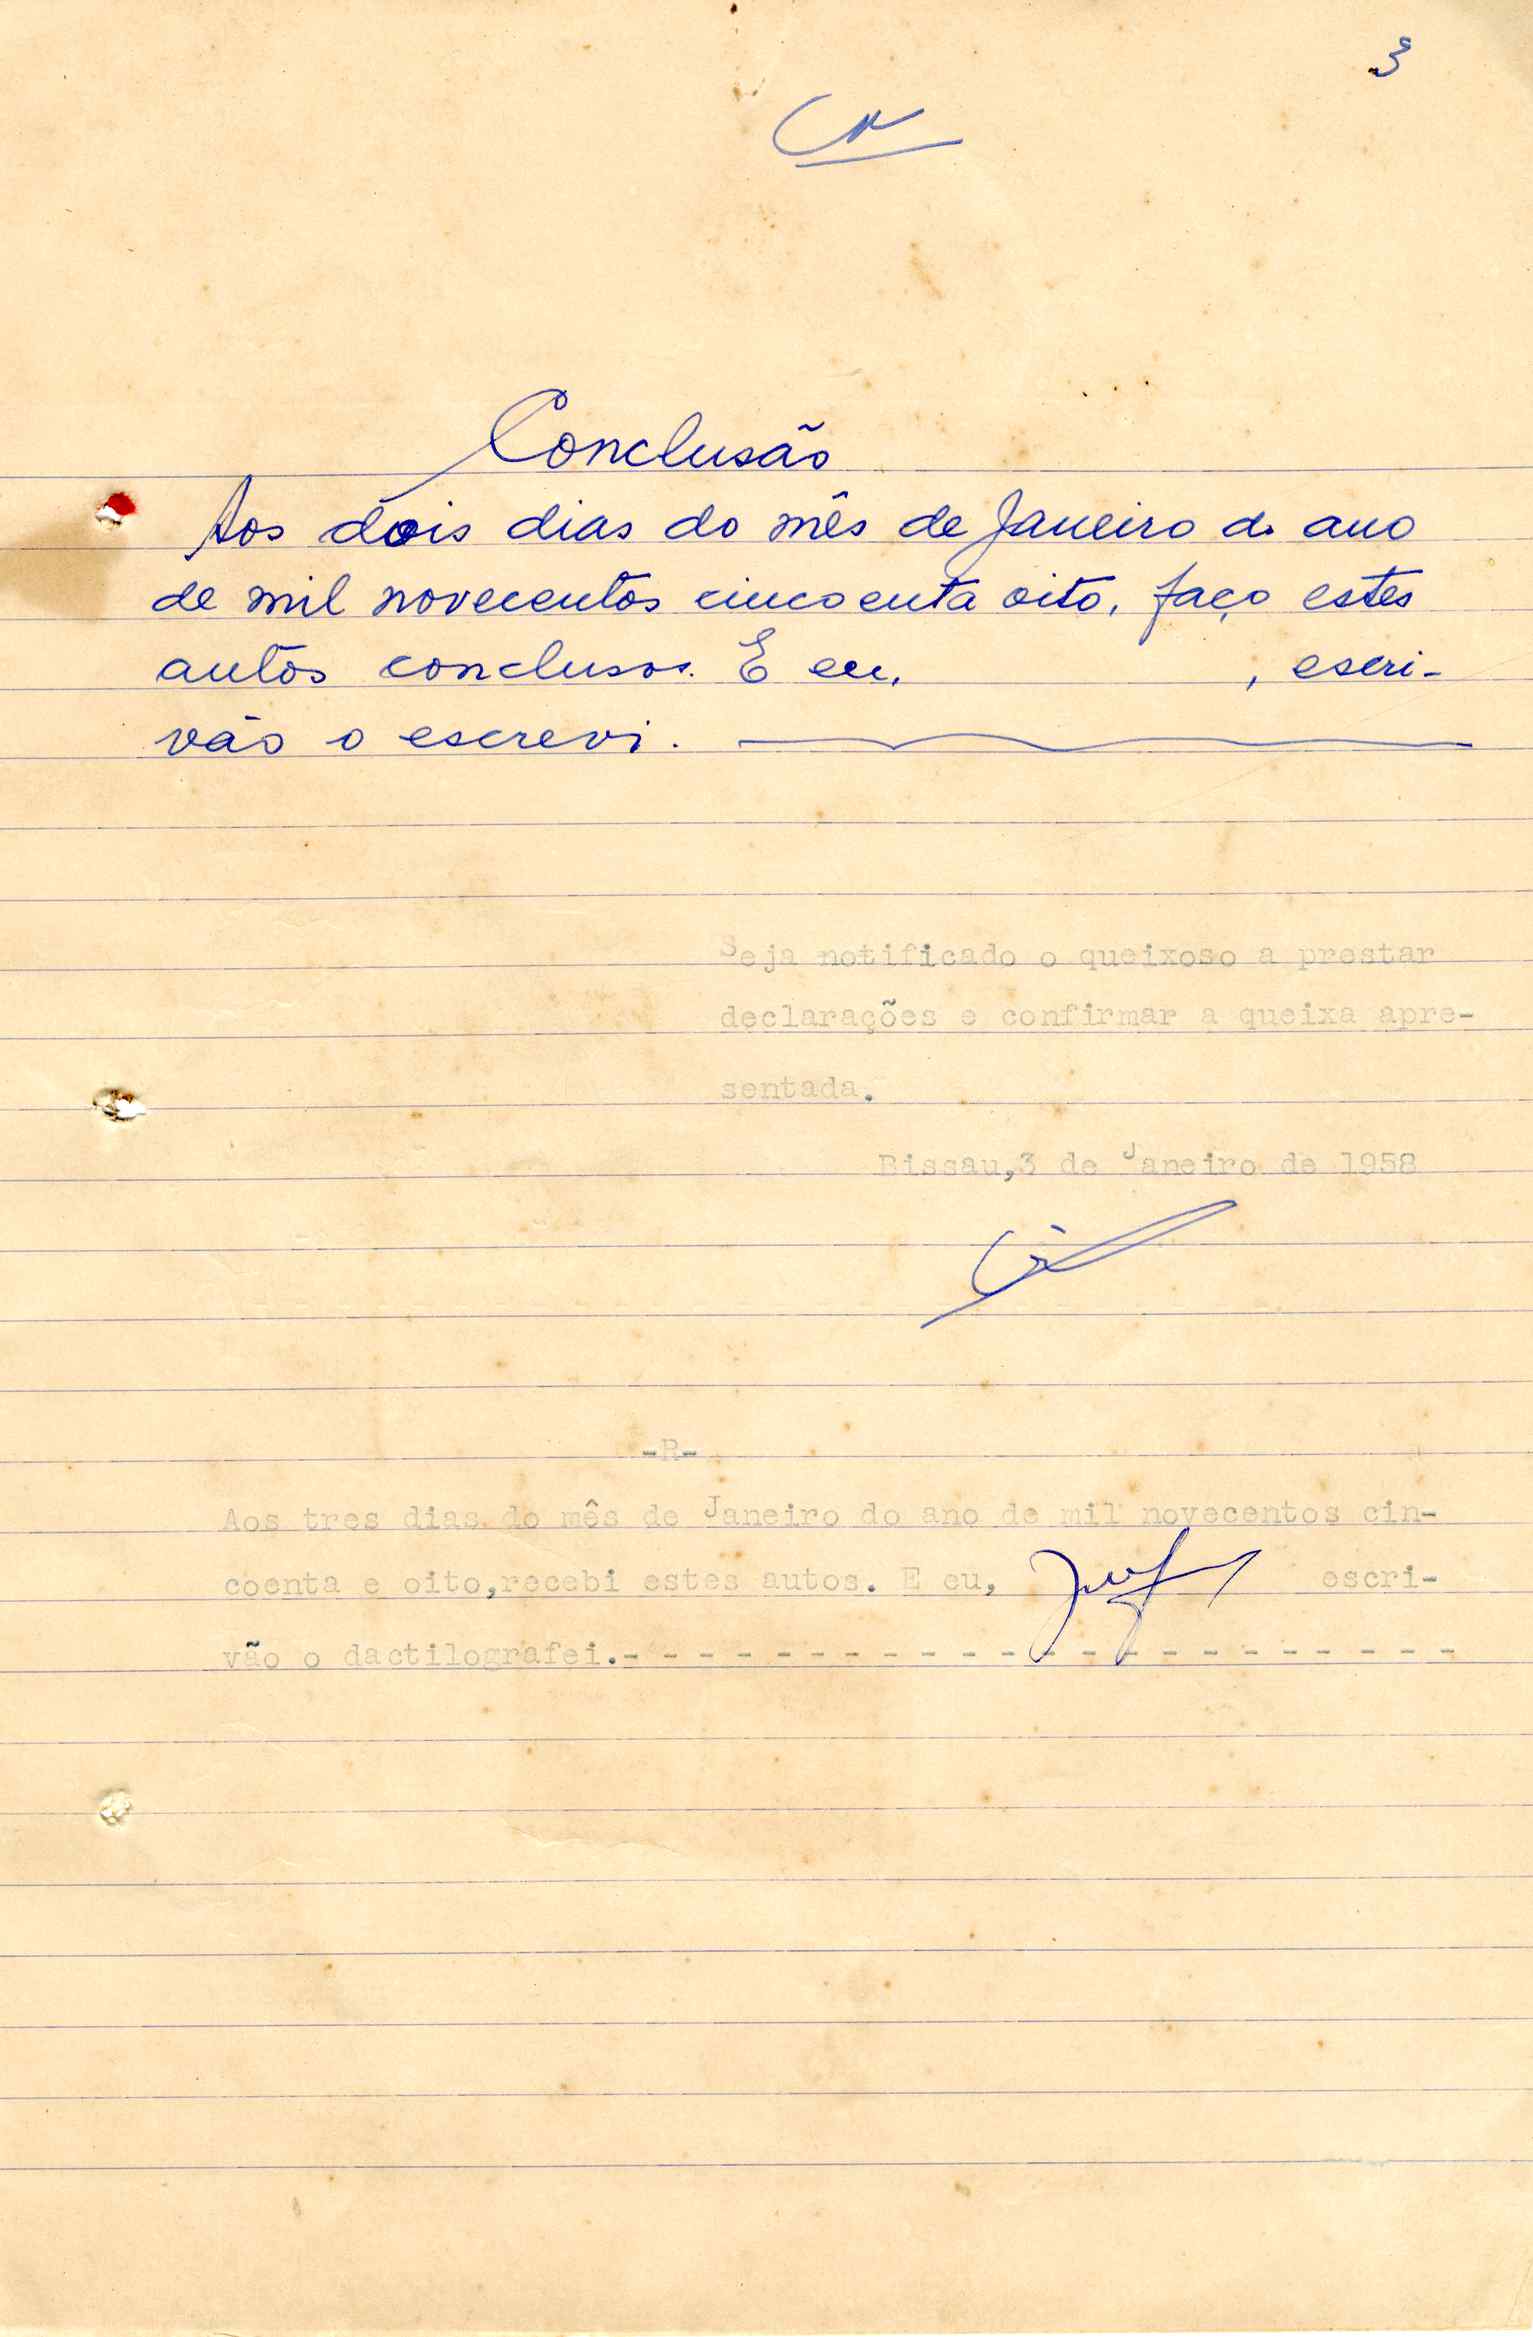 3
Conclusão
Aos dois dias do mês de Janeiro do ano
de mil novecentos cincoenta oito, faço estes
autos conclusos. E eu, , escri-
vão o escrevi.
Seja notificado o queixoso a prestar
declarações e confirmar a queixa apre-
sentada.
Bissau,3 de Janeiro de 1958
-R-
Aos tres dias do mês de Janeiro do ano de mil novecentos cin-
coenta e oito,recebi estes autos. E eu, escri-
vão o dactilografei.- - - - - - - - - - - - - - - - - - - - -